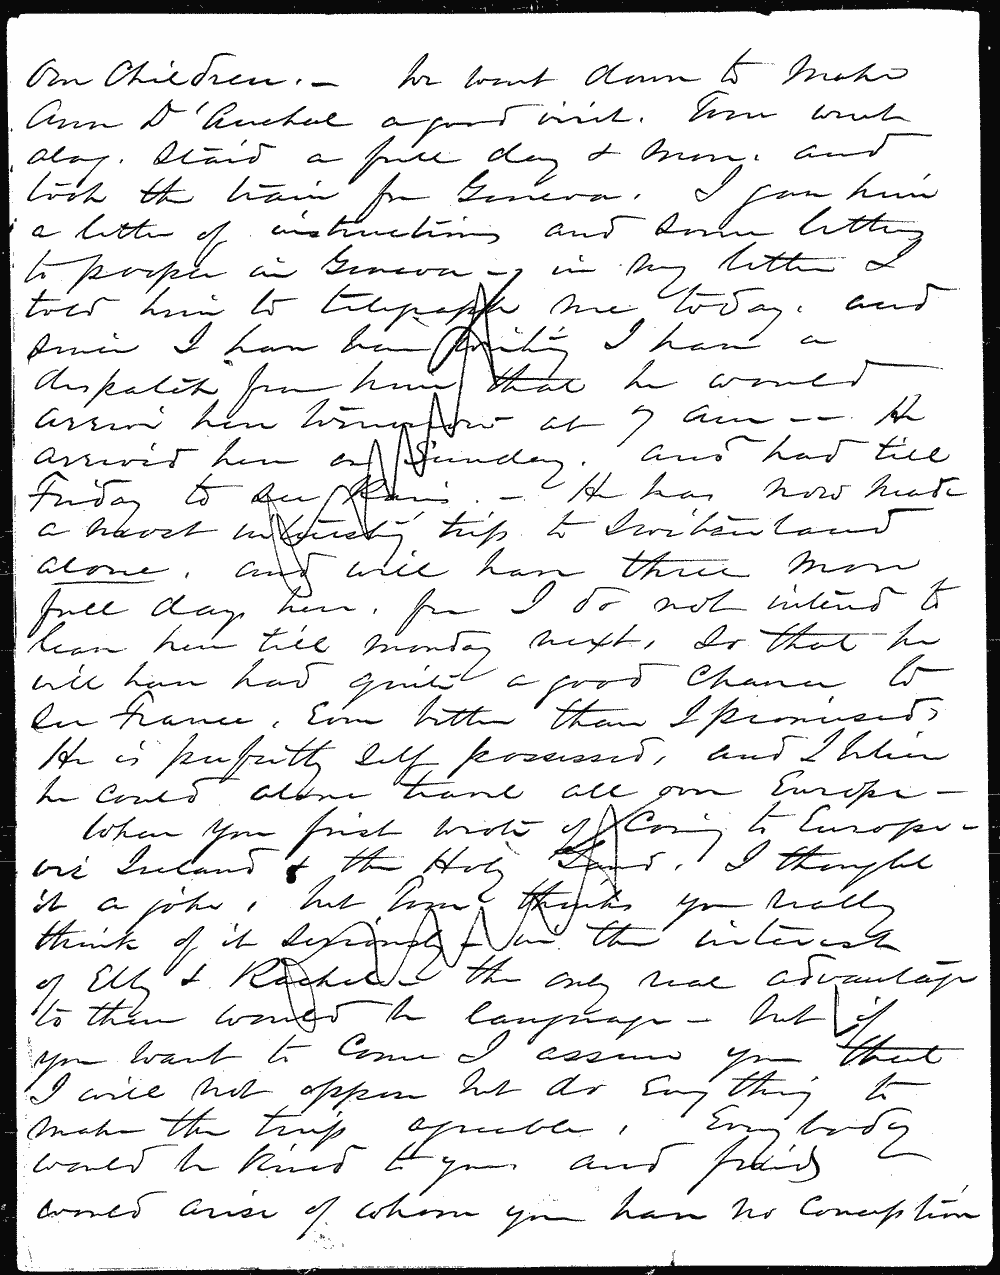 our Children. — We went down to make
Ann D'Auchal a good visit. Tom went
alog. Staid a full day & more, and
took the train for Geneva. I gave him
a letter of instructions and some letters
to people in Geneva — in my letter I
told him to telegraph me today. and
since I have been writing I have a
dispatch from him that he would
arrive here tomorrow at 7 am — He
arrived here on Sunday, and had till
Friday to see Paris. — He has now made
a most interestg trip to Switzerland
alone, and will have three more
full days here, for I do not intend to
leave here till Monday next, so that he
will have had quite a good chance to
see France, Even better than I promised,
He is perfectly self possessed, and I believe
he could alone travel all over Europe —
When you first wrote of Coming to Europe —
via Ireland & the Holy Land, I thought
it a joke, but Tom thinks you really
think of it seriously — in the interest
of Elly & Rachel — the only real advantage
to them would be language — but if
you want to Come I assure you that
I will not oppose but do Everything to
make the trip agreeable, Everybody
would be kind to you and friends
would arise of whom you have no Conception